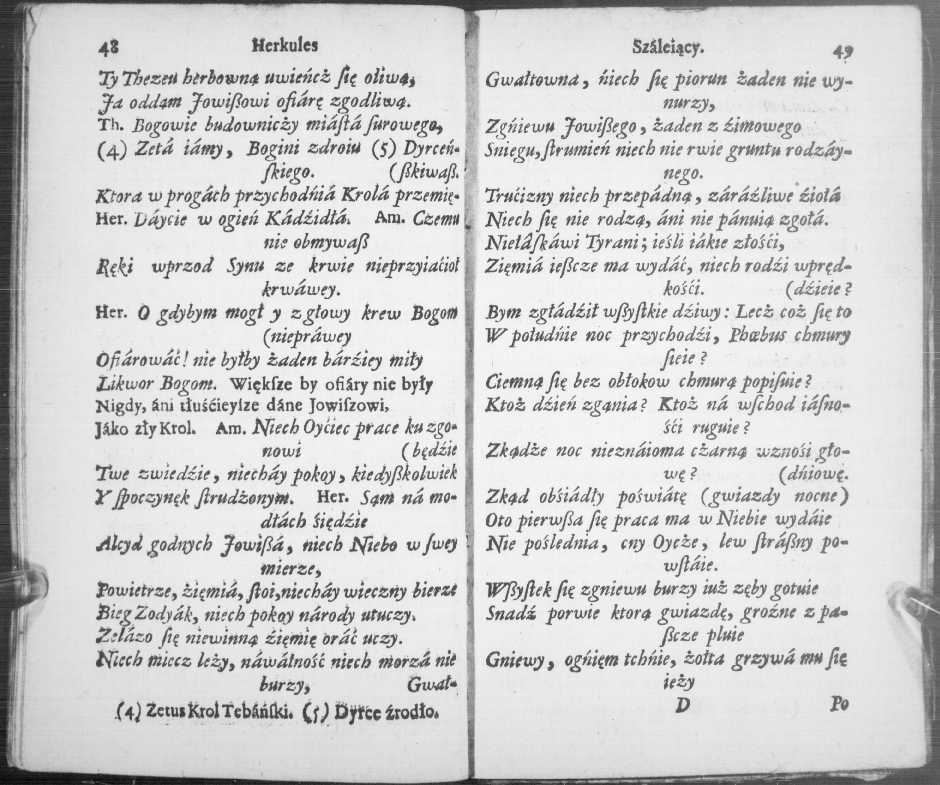 48 Herkules
Ty Thezeu herbowną uwieńcż ſię oliwą,
Ja oddam Jowißowi ofiárę zgodliwą.
Th. Bogowie budownicży miáſtá ſurowego,
(4) Zetá iámy, Bogini zdroiu (5) Dyrceń-
ſkiego. (ßkiwaß.
Ktora w progách przychodńiá Krolá przemię-
Her. Dáycie w ogień Kádźidłá. Am. Czemu
nie obmywaß
Ręki wprzod Synu ze krwie nieprzyiaćioł
krwáwey.
Her. O gdybym mogł y z głowy krew Bogom
(niepráwey
Ofiárowáć! nie byłby żaden bárźiey miły
Likwor Bogom. Większe by ofiáry nie były
Nigdy, áni tłuśćieyſze dáne Jowiſzowi,
Jáko zły Krol. Am. Niech Oyćiec prace ku zgo-
nowi (będźie
Twe zwiedźie, niecháy pokoy, kiedyßkolwiek
Y ſpoczynęk ſtrudżonym. Her. Sąm ná mo-
dłách śiędźie
Alcyd godnych Jowißá, niech Niebo w ſwey
mierze,
Powietrze, żięmiá, ſtoi, niecháy wieczny bierze
Bieg Zodyák, niech pokoy národy utuczy.
Zelázo ſię niewinną źięmię oráć uczy.
Niech miecz leży, náwáłność niech morzá nie
burzy, Gwał-
(4) Zetus Krol Tebáńſki. (5) Dyrce źrodło.
Száleiący. 49
Gwałtowna, ńiech ſię piorun żaden nie wy-
nurzy,
Zgńiewu Jowißego, żaden z źimowego
Sniegu, ſtrumień niech nie rwie gruntu rodzáy-
nego.
Trućizny niech przepádną, záráźliwe źiołá
Niech ſię nie rodzą, áni nie pánuią zgołá.
Niełáſkáwi Tyrani; ieśli iákie złośći,
Zięmiá ießcze ma wydáć, niech rodźi wpręd-
kośći. (dźieie?
Bym zgłádźił wßyſtkie dźiwy: Lecż coż ſię to
W południe noc przychodźi, Phœbus chmury
ſieie?
Ciemną ſię bez obłokow chmurą popiſuie?
Ktoż dźień zgąnia? Ktoż ná wſchod iáſno-
śći ruguie?
Zkądże noc nieznáioma cżarną wznośi gło-
wę? (dńiowę.
Zkąd obśiádły poświátę (gwiazdy nocne)
Oto pierwßa ſię praca ma w Niebie wydáie
Nie poślednia, cny Oycże, lew ſtráßny po-
wſtáie.
Wßyſtek ſię zgniewu burzy iuż zęby gotuie
Snadź porwie ktorą gwiazdę, groźne z pa-
ßcze pluie
Gniewy, ogńięm tchńie, żołta grzywá mu ſię
ieży
D Po